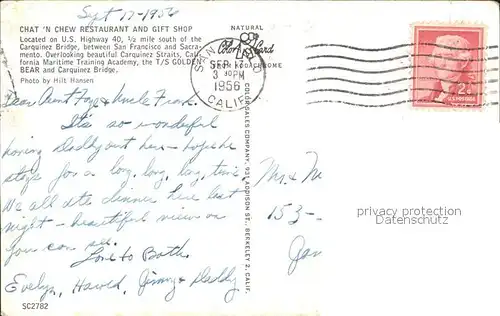 Sept 17-1956
CHAT 'N CHEW RESTAURANT AND GIFT SHOP
Located on U.S. Highway 40, ½ mile south of the
Carquinez Bridge, between San Francisco and Sacra-
mento. Overlooking beautiful Carquinez Straits, Cali-
fornia Maritime Training Academy, the T/S GOLDEN
BEAR and Carquinez Bridge.
Photo by Hilt Hansen
NATURAL
Color Card
SEP 17
3 30 PM
1956
CALIF.
2¢
U.S. POSTAGE
Dear Aunt Faye & Uncle Frank,
It's so wonderful
having Daddy out here - hope he
stays for a long, long, long, time.
We all ate dinner here last
night - beautiful view as
you can see.
Love to Both
Evelyn, Harold, Jimmy & Daddy
SC2782
COLOR SALES COMPANY, 935 ADDISON ST., BERKELEY 2, CALIF.
Mr. & M
153-
privacy protection
Datenschutz